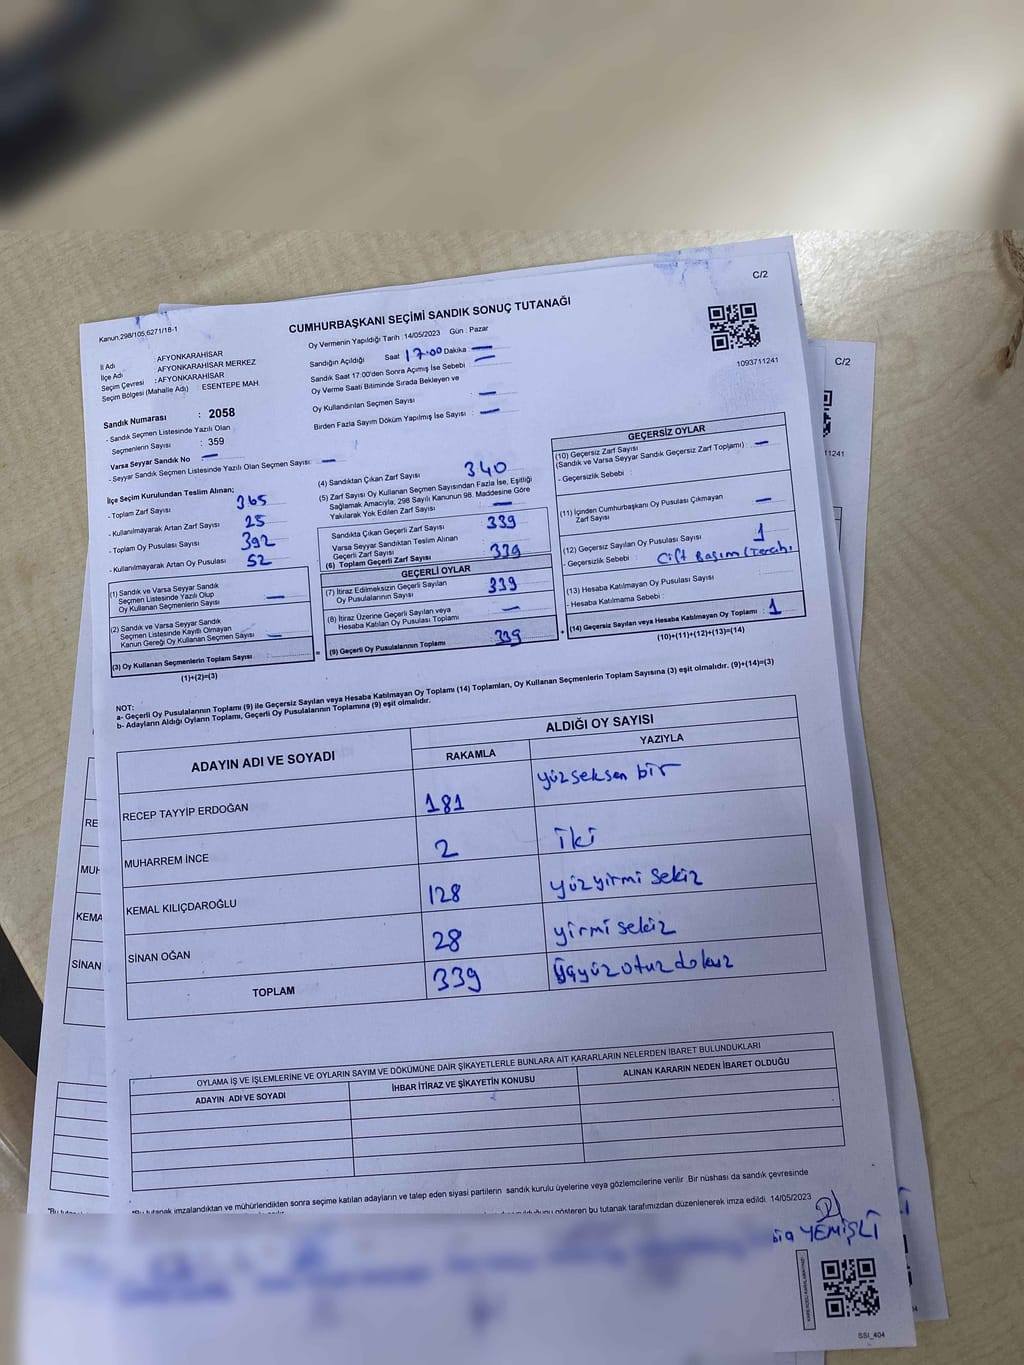 C/2
Kanun.298/105,6271/18-1
CUMHURBAŞKANI SEÇİMİ SANDIK SONUÇ TUTANAĞI
1093711241
İl Adı : AFYONKARAHİSAR
İlçe Adı : AFYONKARAHİSAR MERKEZ
Seçim Çevresi : AFYONKARAHİSAR
Seçim Bölgesi (Mahalle Adı) ESENTEPE MAH.
Oy Vermenin Yapıldığı Tarih : 14/05/2023 Gün : Pazar
Sandığın Açıldığı Saat 17:00 Dakika —
Sandık Saat 17:00'den Sonra Açımış İse Sebebi —
Oy Verme Saati Bitiminde Sırada Bekleyen ve
Oy Kullandırılan Seçmen Sayısı : —
Birden Fazla Sayım Döküm Yapılmış İse Sayısı : —
Sandık Numarası : 2058
- Sandık Seçmen Listesinde Yazılı Olan
Seçmenlerin Sayısı : 359
Varsa Seyyar Sandık No —
- Seyyar Sandık Seçmen Listesinde Yazılı Olan Seçmen Sayısı: —
İlçe Seçim Kurulundan Teslim Alınan;
- Toplam Zarf Sayısı 365
- Kullanılmayarak Artan Zarf Sayısı 25
- Toplam Oy Pusulası Sayısı 392
- Kullanılmayarak Artan Oy Pusulası 52
(1) Sandık ve Varsa Seyyar Sandık
Seçmen Listesinde Yazılı Olup
Oy Kullanan Seçmenlerin Sayısı : —
(2) Sandık ve Varsa Seyyar Sandık
Seçmen Listesinde Kayıtlı Olmayan
Kanun Gereği Oy Kullanan Seçmen Sayısı : —
(3) Oy Kullanan Seçmenlerin Toplam Sayısı :
(1)+(2)=(3)
(4) Sandıktan Çıkan Zarf Sayısı 340
(5) Zarf Sayısı Oy Kullanan Seçmen Sayısından Fazla İse, Eşitliği
Sağlamak Amacıyla; 298 Sayılı Kanunun 98. Maddesine Göre
Yakılarak Yok Edilen Zarf Sayısı : —
Sandıkta Çıkan Geçerli Zarf Sayısı 339
Varsa Seyyar Sandıktan Teslim Alınan
Geçerli Zarf Sayısı
(6) Toplam Geçerli Zarf Sayısı 339
GEÇERLİ OYLAR
(7) İtiraz Edilmeksizin Geçerli Sayılan
Oy Pusulalarının Sayısı : 339
(8) İtiraz Üzerine Geçerli Sayılan veya
Hesaba Katılan Oy Pusulası Toplamı : —
(9) Geçerli Oy Pusulalarının Toplamı : 339
GEÇERSİZ OYLAR
(10) Geçersiz Zarf Sayısı
(Sandık ve Varsa Seyyar Sandık Geçersiz Zarf Toplamı) : —
- Geçersizlik Sebebi :
(11) İçinden Cumhurbaşkanı Oy Pusulası Çıkmayan
Zarf Sayısı —
(12) Geçersiz Sayılan Oy Pusulası Sayısı : 1
- Geçersizlik Sebebi : Çift Basım (Tercih)
(13) Hesaba Katılmayan Oy Pusulası Sayısı :
- Hesaba Katılmama Sebebi :
(14) Geçersiz Sayılan veya Hesaba Katılmayan Oy Toplamı : 1
(10)+(11)+(12)+(13)=(14)
NOT:
a- Geçerli Oy Pusulalarının Toplamı (9) ile Geçersiz Sayılan veya Hesaba Katılmayan Oy Toplamı (14) Toplamları, Oy Kullanan Seçmenlerin Toplam Sayısına (3) eşit olmalıdır. (9)+(14)=(3)
b- Adayların Aldığı Oyların Toplamı, Geçerli Oy Pusulalarının Toplamına (9) eşit olmalıdır.
ADAYIN ADI VE SOYADI
ALDIĞI OY SAYISI
RAKAMLA YAZIYLA
RECEP TAYYİP ERDOĞAN 181 yüzseksen bir
MUHARREM İNCE 2 iki
KEMAL KILIÇDAROĞLU 128 yüzyirmi sekiz
SİNAN OĞAN 28 yirmi sekiz
TOPLAM 339 üçyüzotuz dokuz
OYLAMA İŞ VE İŞLEMLERİNE VE OYLARIN SAYIM VE DÖKÜMÜNE DAİR ŞİKAYETLERLE BUNLARA AİT KARARLARIN NELERDEN İBARET BULUNDUKLARI
ADAYIN ADI VE SOYADI İHBAR İTİRAZ VE ŞİKAYETİN KONUSU ALINAN KARARIN NEDEN İBARET OLDUĞU
*Bu tutanak imzalandıktan ve mühürlendikten sonra seçime katılan adayların ve talep eden siyasi partilerin sandık kurulu üyelerine veya gözlemcilerine verilir. Bir nüshası da sandık çevresinde
gösteren bu tutanak tarafımızdan düzenlenerek imza edildi. 14/05/2023
YEMİŞLİ
SSI_404
C/2
11241
RE
MUH
KEMA
SİNAN